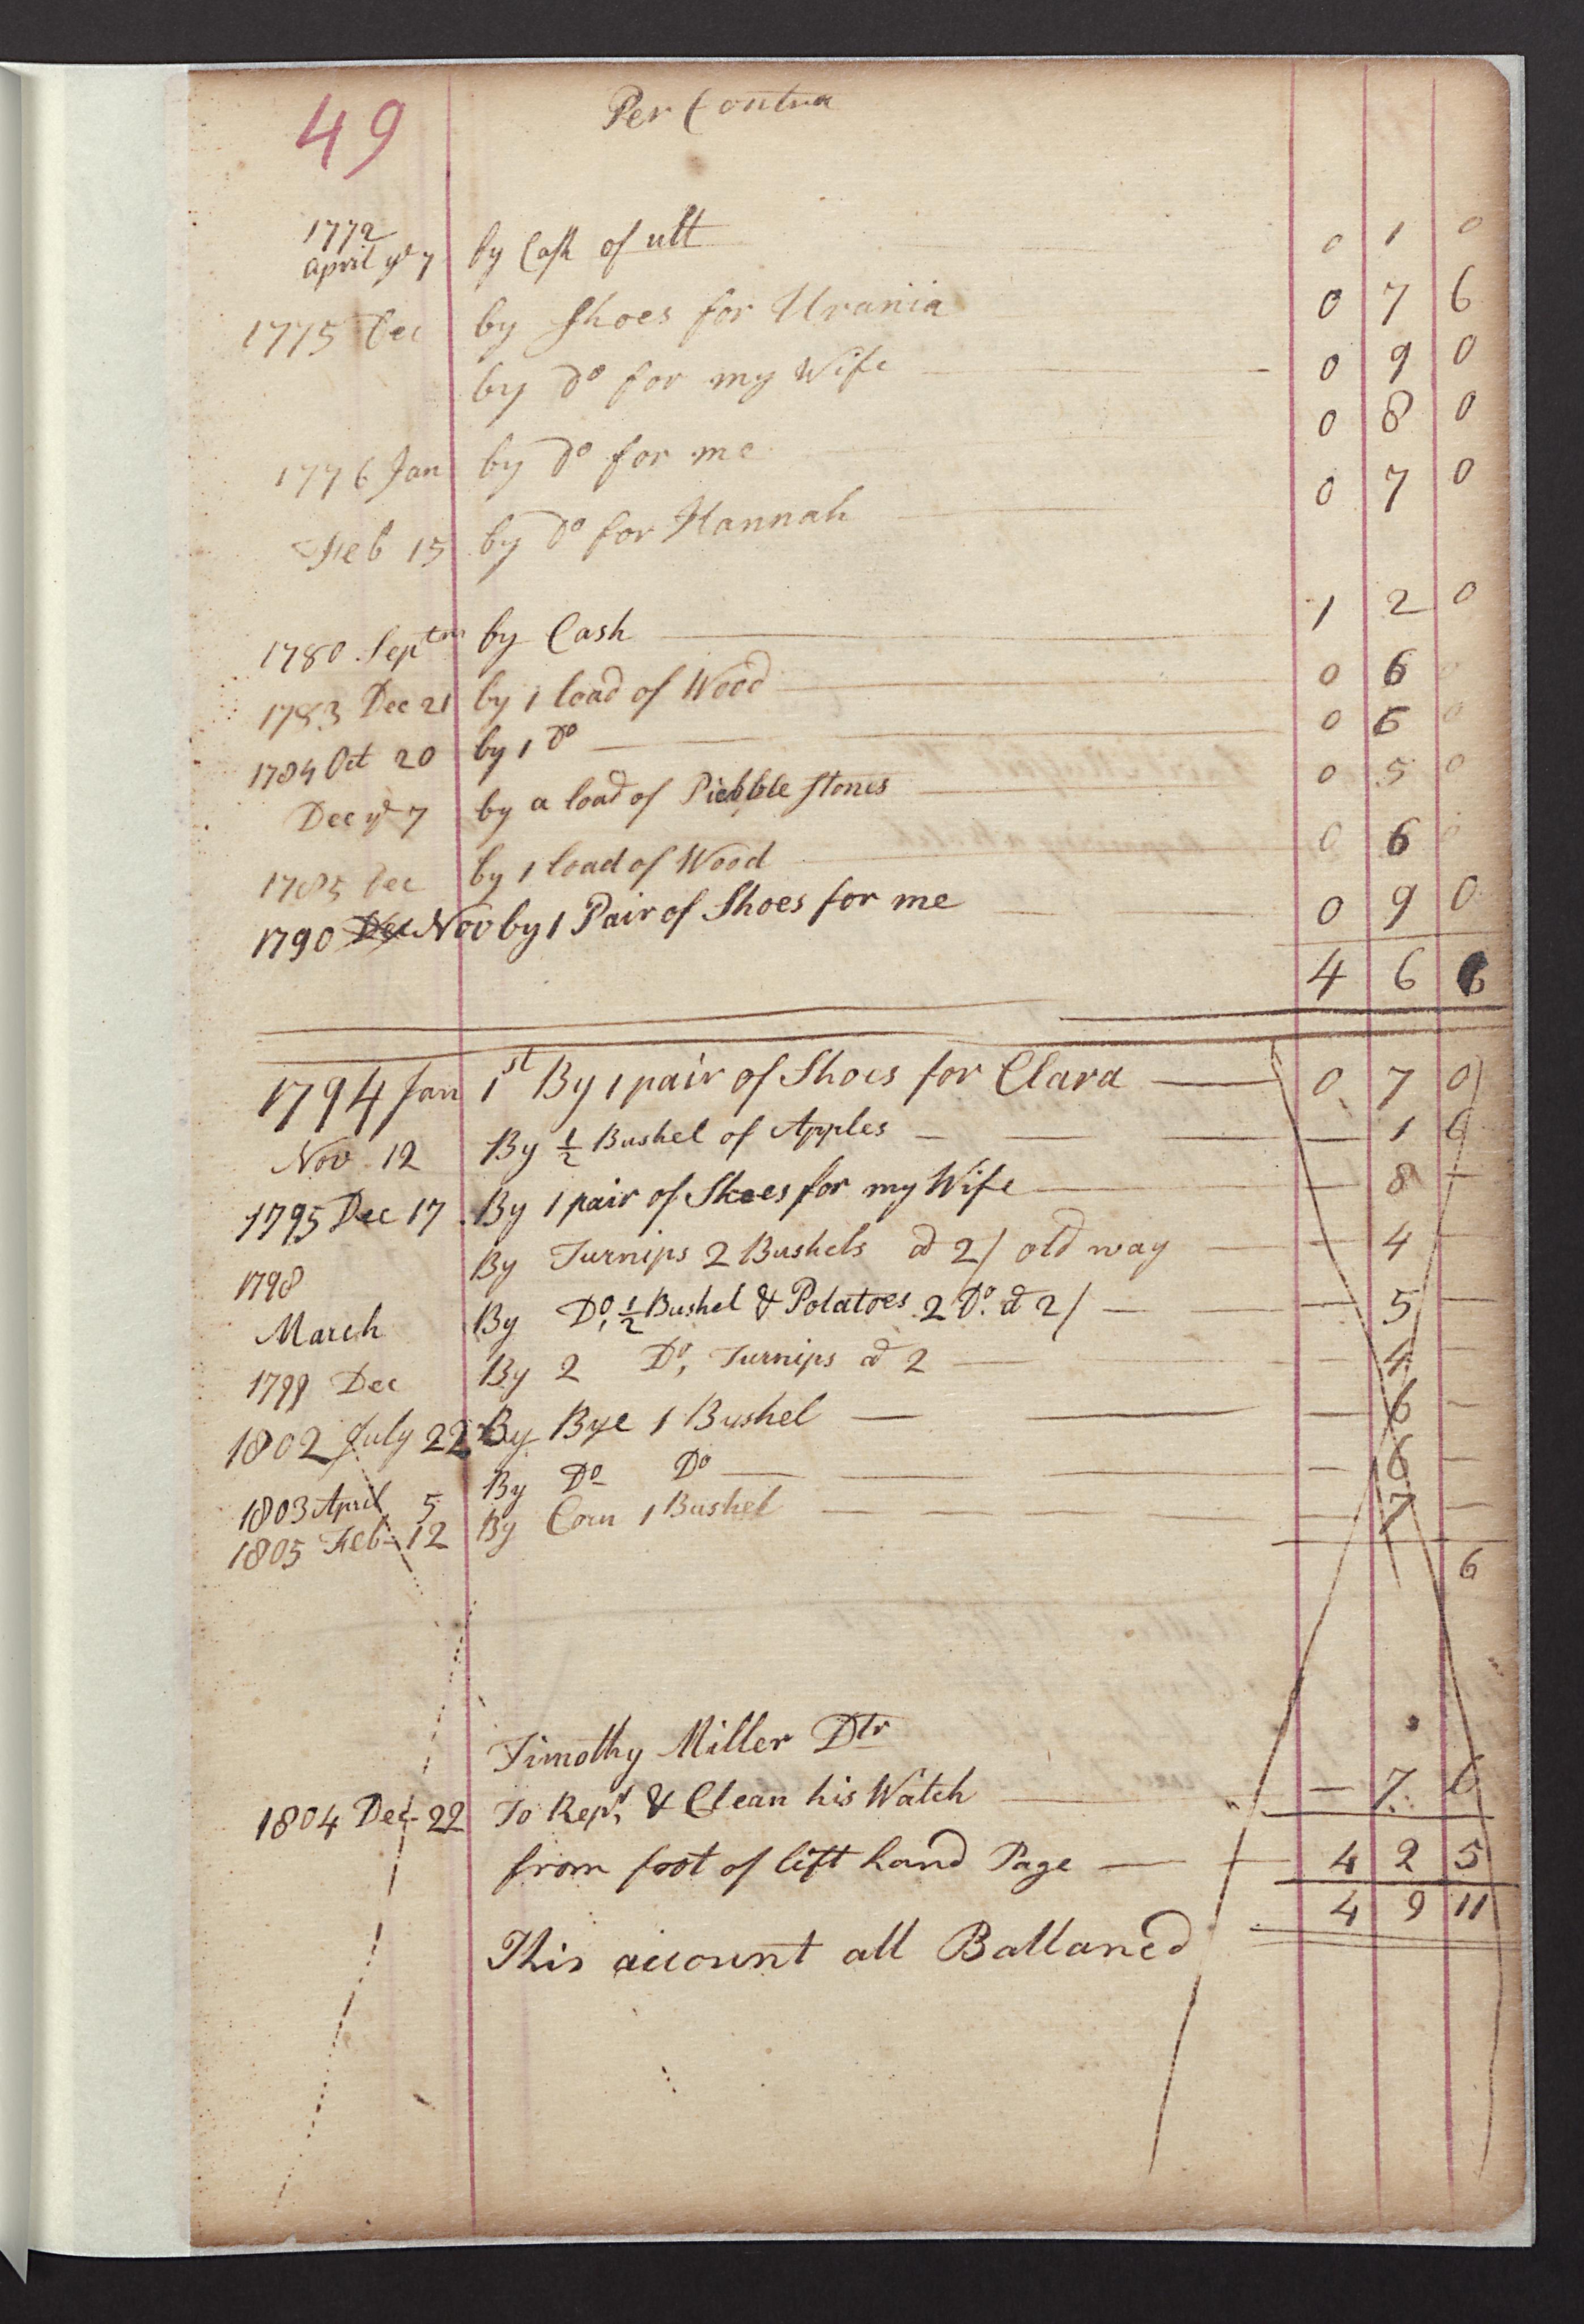 49
Per Contra
1772
April ye 7 by Cash of ult 0 1 0
1775 Dec by Shoes for Urania 0 7 6
by do for my Wife 0 9 0
1776 Jan by do for me 0 8 0
Feb 15 by do for Hannah 0 7 0
1780 Septm by Cash 1 2 0
1783 Dec 21 by 1 load of Wood 0 6 0
1784 Oct 20 by 1 do 0 6 0
Dec ye 7 by a load of Piebble stones 0 5 0
1785 Dec by 1 load of Wood 0 6 0
1790 Dec Nov by 1 Pair of Shoes for me 0 9 0
4 6 6
1794 Jan 1st By 1 pair of Shoes for Clara 0 7 0
Nov 12 By ½ Bushel of Apples — 1 6
1795 Dec 17 By 1 pair of Shoes for my Wife — 8 —
1798 By Turnips 2 Bushels a 2/ old way — 4 —
March By Do, ½ Bushel & Potatoes 2 Do. a 2/ — 5 —
1799 Dec By 2 Do, Turnips a 2 — 4 —
1802 July 22 By Rye 1 Bushel — 6 —
1803 April 5 By Do Do — 6 —
1805 Feb 12 By Corn 1 Bushel — 7 —
6
Timothy Miller Dtr
1804 Dec 22 To Repr, & Clean his Watch — 7 6
from foot of left hand Page — 4 2 5
4 9 11
This account all Ballanced